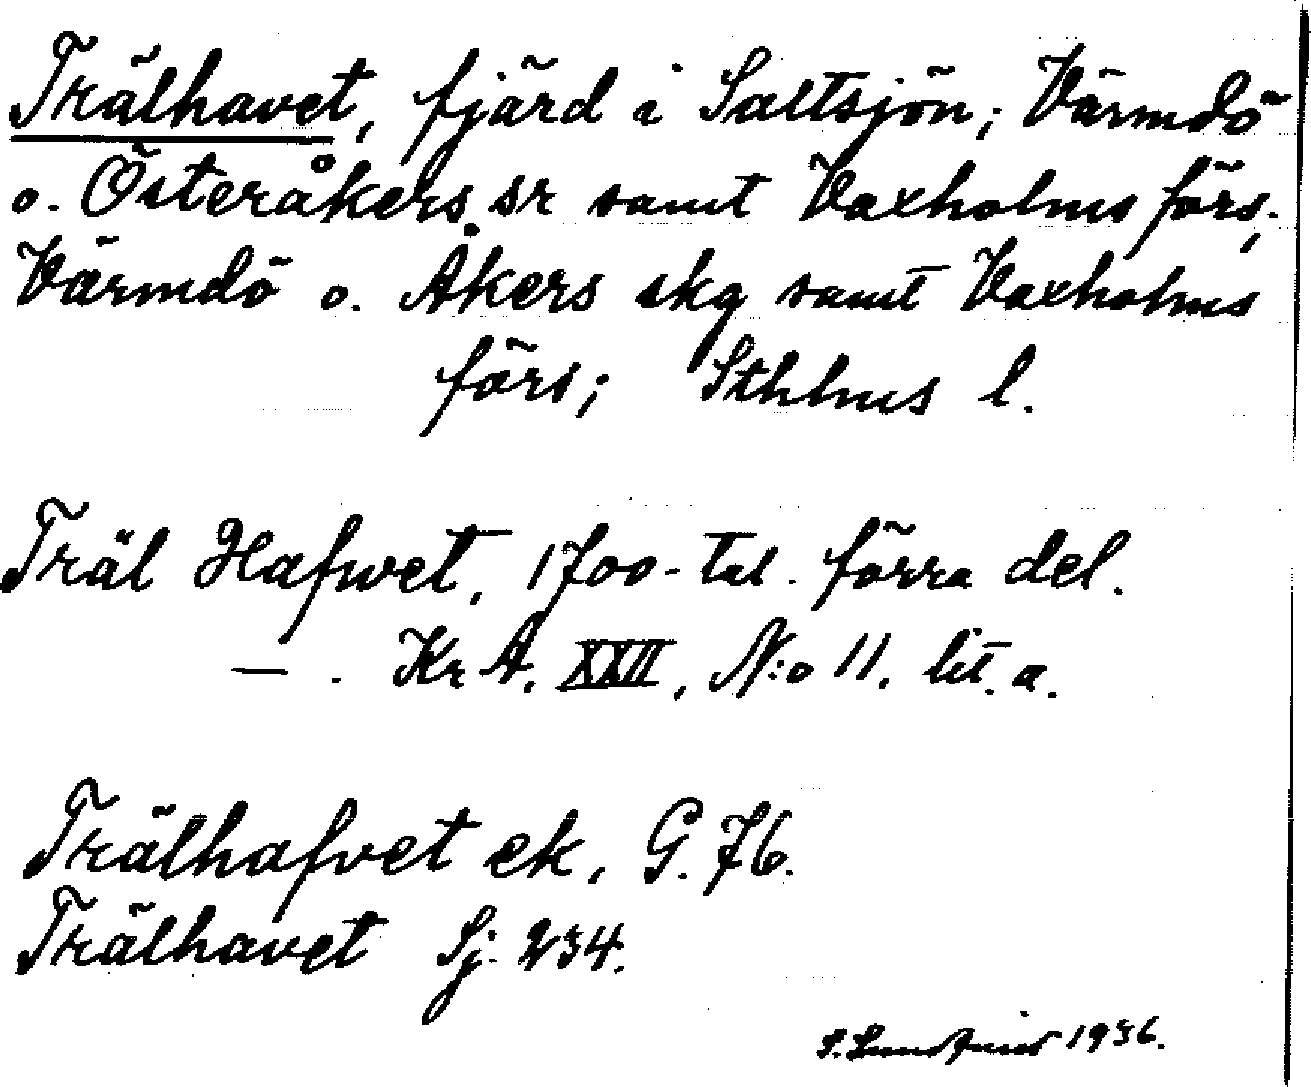 Trälhavet, fjärd i Saltsjön; Värmdö
o. Österåkers sr samt Vaxholms förs,
Värmdö o. Åkers skg samt Vaxholms
förs; Sthlms l.
Träl Hafwet, 1700-tal. förra del.
— . Kr A. XXII, N:o 11. lit. a.
Trälhafvet ek, G. 76.
Trälhavet Sj. 234.
S. 1936.